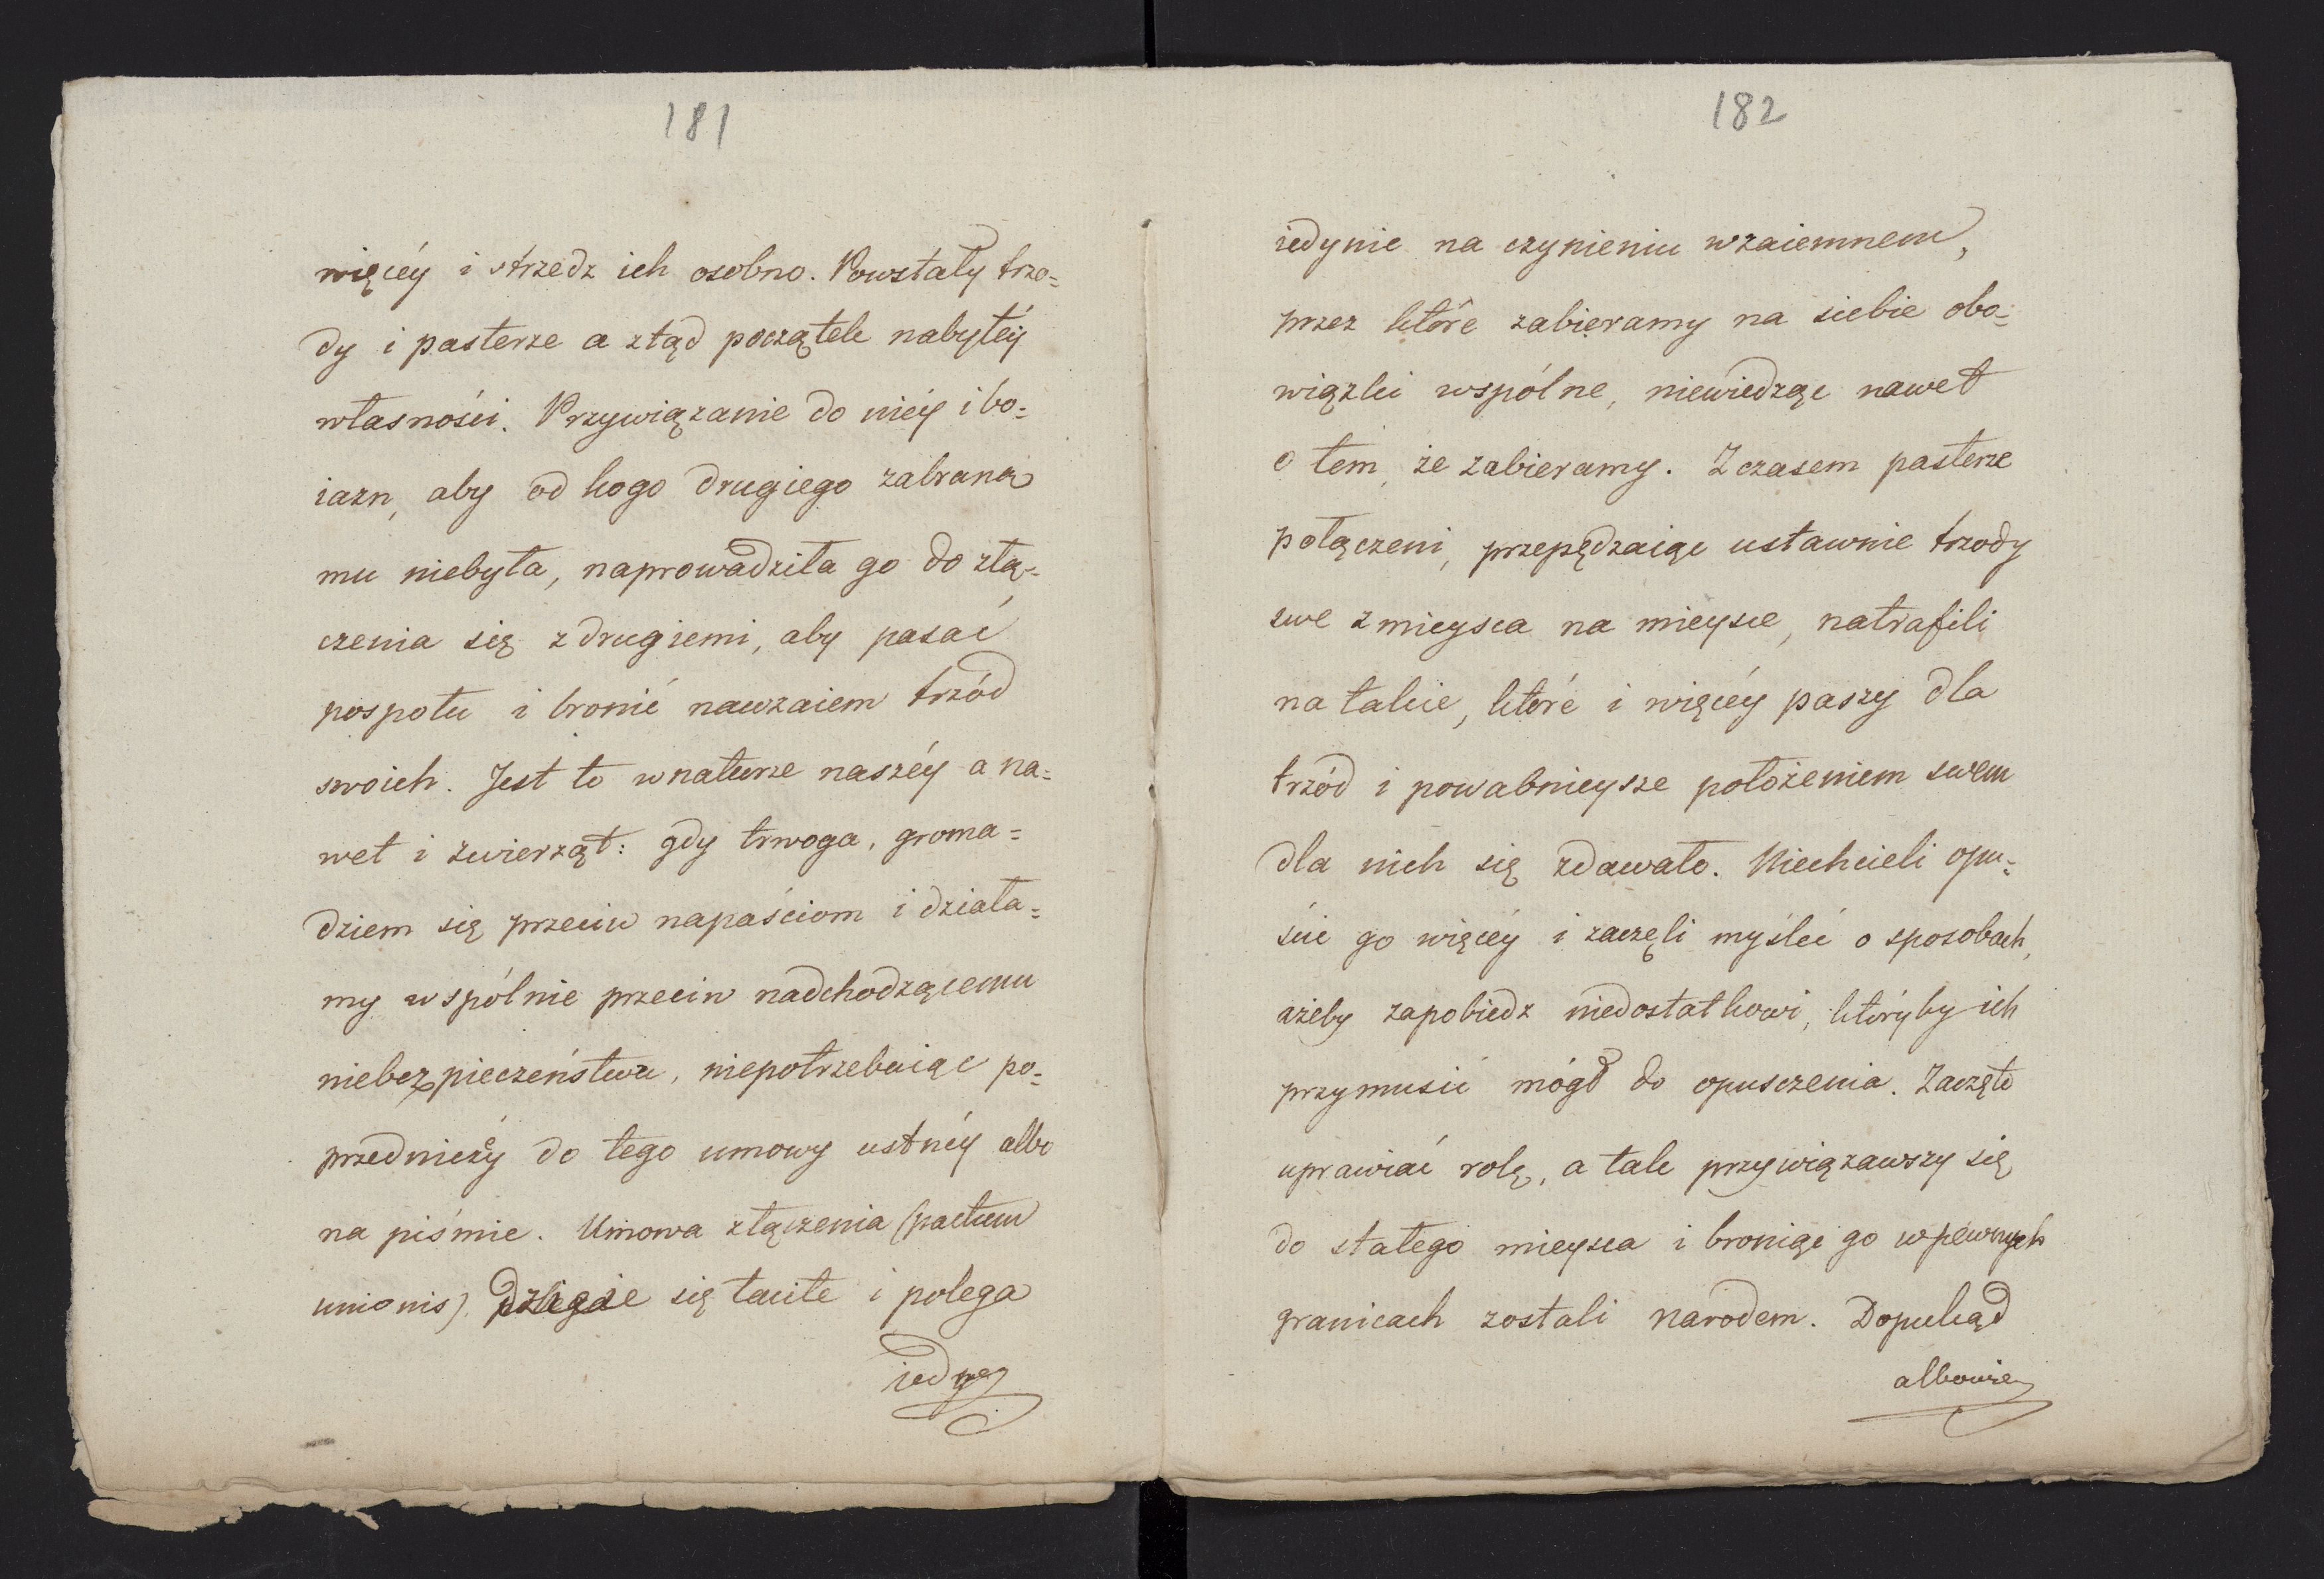 181
więcéy i strzedz ich osobno. Powstały trzo=
dy i pasterze a ztąd początek nabytéy
własności. Przywiązanie do niéy i bo=
iazn, aby od kogo drugiego zabrana
mu niebyła, naprowadziła go do złą=
czenia się z drugiemi, aby pasać
pospołu i bronić nawzaiem trzód
swoich. Jest to w naturze naszéy a na=
wet i zwierząt: gdy trwoga, groma=
dziem się przeciw napaściom i działa=
my wspólnie przeciw nadchodzącemu
niebezpieczeństwu, niepotrzebuiąc po=
przedniczéy do tego umowy ustnéy albo
na piśmie. Umowa złączenia (pactum
unionis) dzieie się tacite i polega
iedy
182
iedynie na czynieniu wzaiemnem,
przez które zabieramy na siebie obo=
wiązki wspólne, niewiedząc nawet
o tem, że zabieramy. Z czasem pasterze
połączeni, przepędzaiąc ustawnie trzody
swe z mieysca na mieysce, natrafili
na takie, któré i więcéy paszy dla
trzód i powabnieysze położeniem swem
dla nich się zdawało. Niechcieli opu=
ście go więcéy i zaczęli myśleć o sposobach,
ażeby zapobiedz niedostatkowi, któryby ich
przymusić mógł do opusczenia. Zaczęto
uprawiać rolę, a tak przywiązawszy się
do stałego mieysca i broniąc go w pewnych
granicach zostali narodem. Dopukąd
albowie